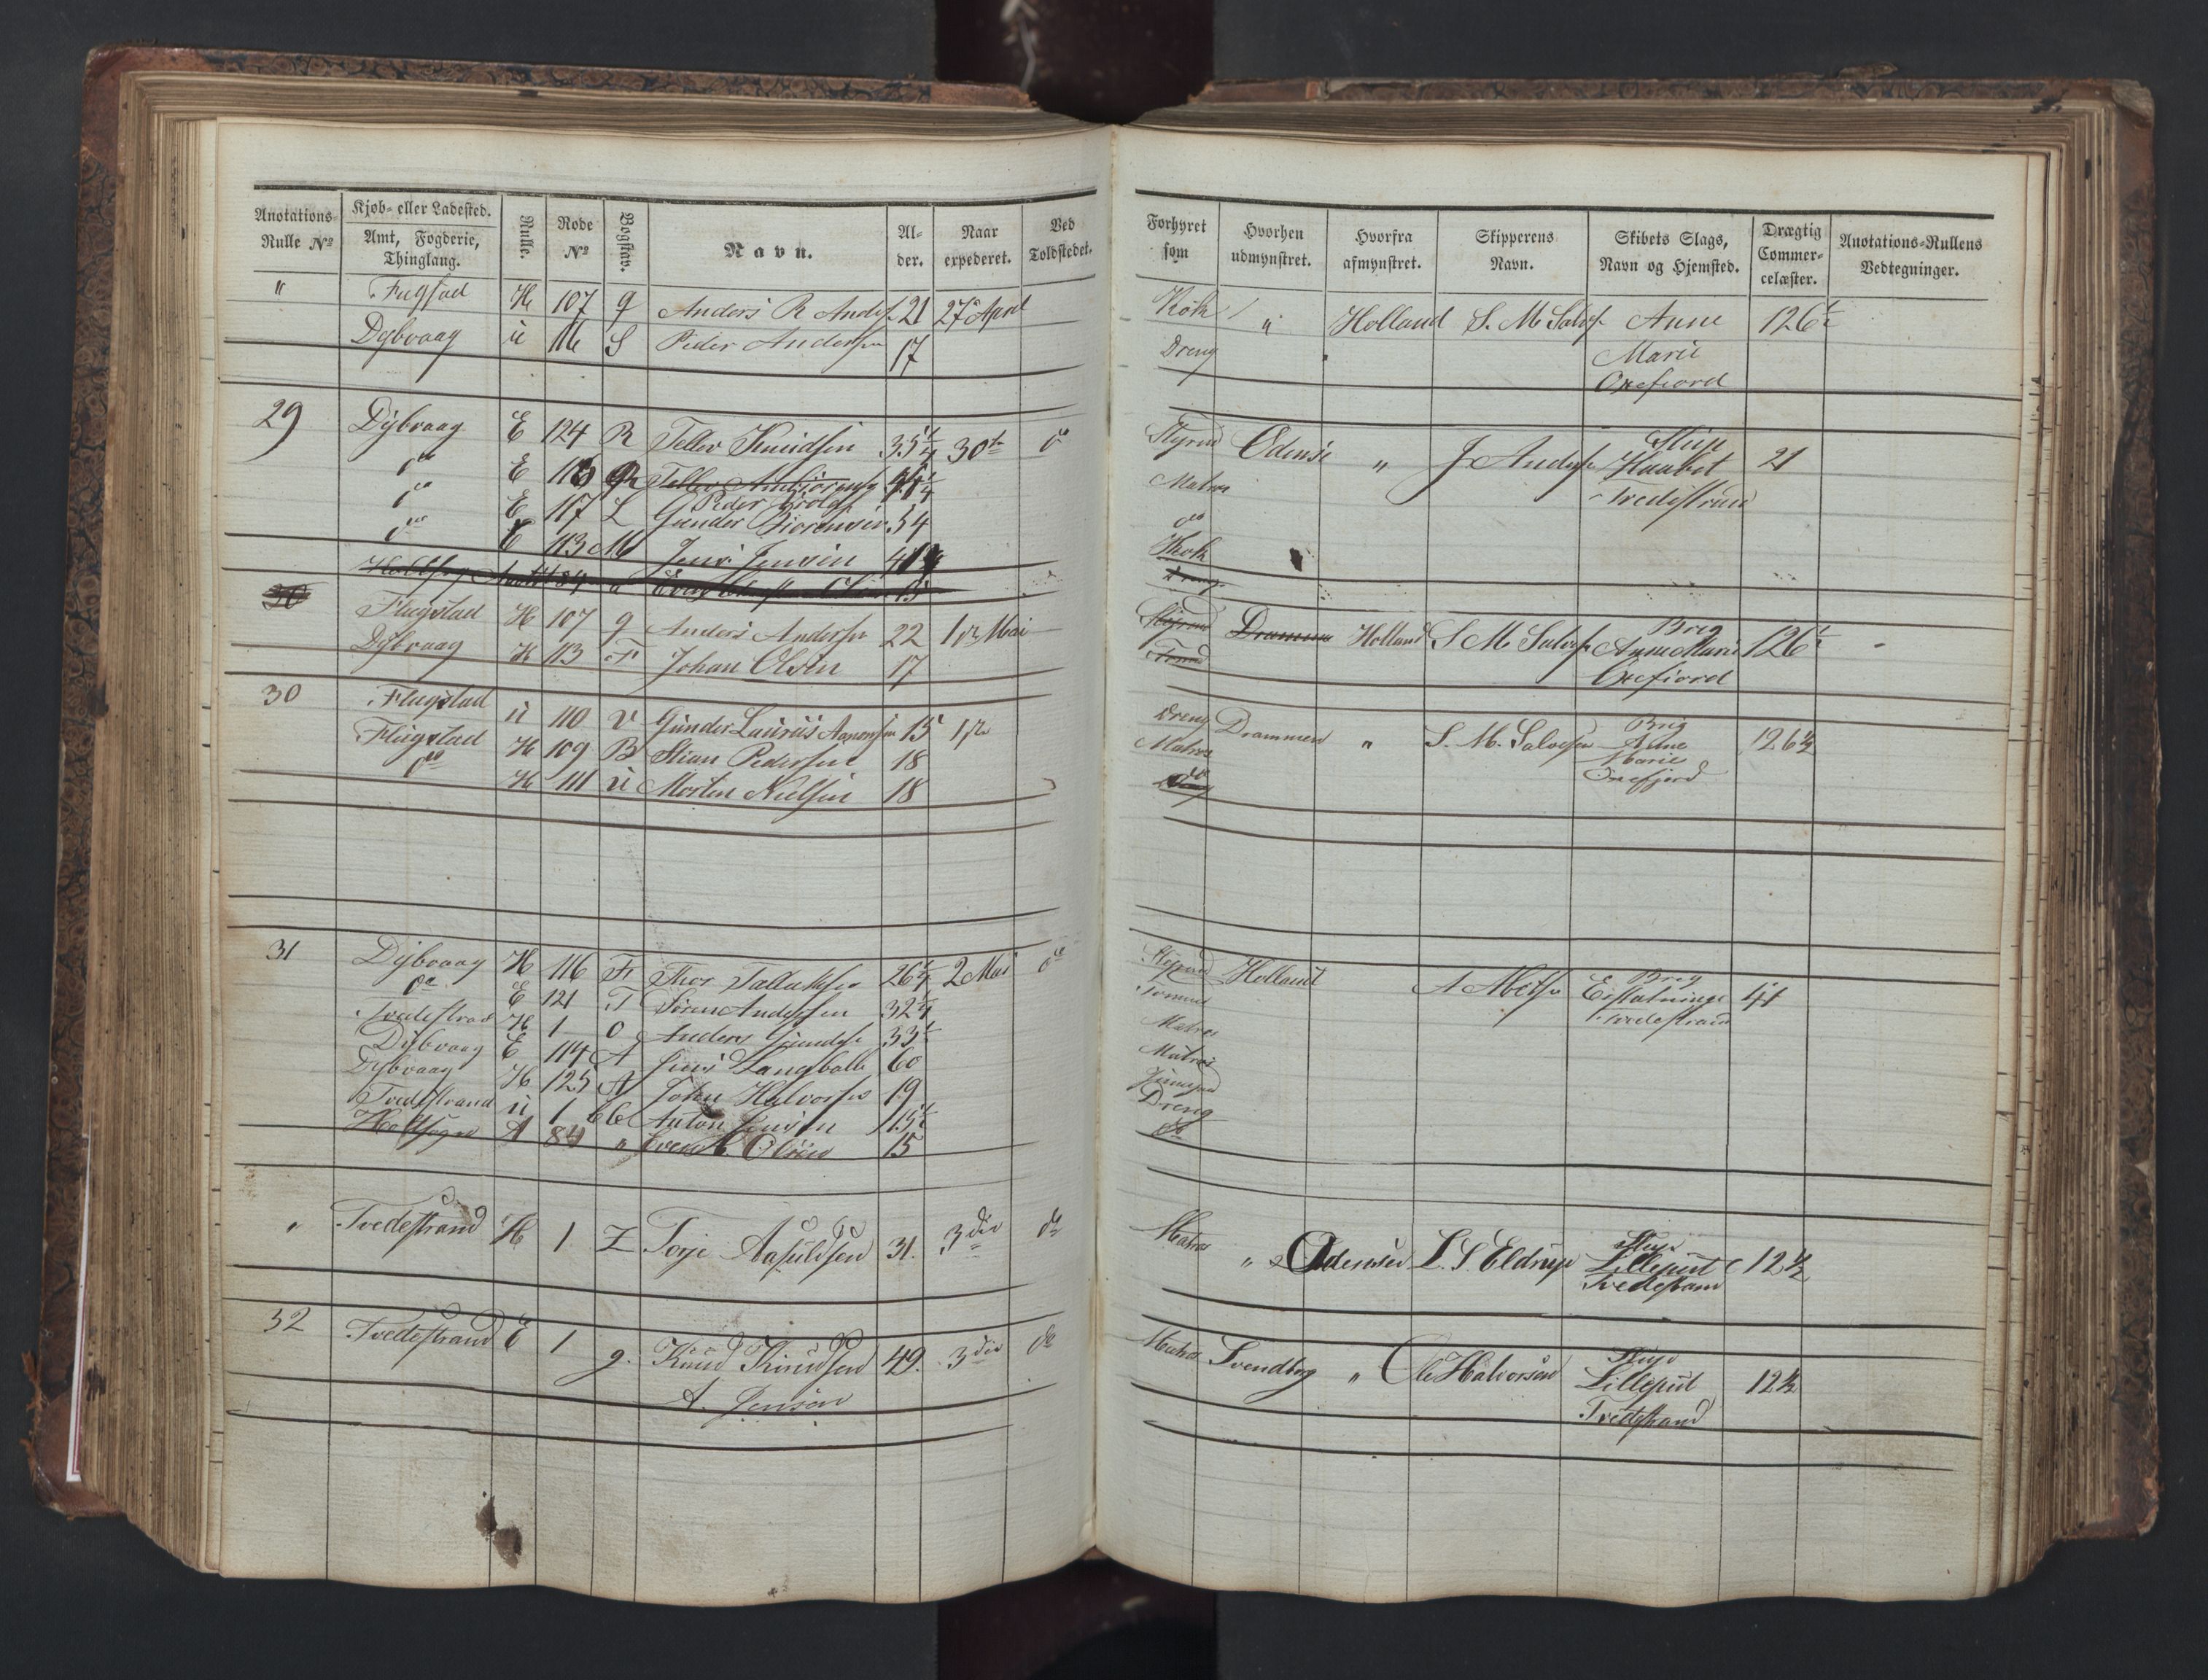 Anotations-Rulle No
Kjøb- eller Ladested.
Amt, Fogderie, Thinglaug.
Rulle.
Rode No
Bogstav.
Navn.
Al-der.
Naar expederet.
Ved Toldstedet.
Forhyret som
Hvorhen udmynstret.
Hvorfra afmynstret.
Skipperens Navn.
Skibets Slags, Navn og Hjemsted.
Drægtig Commer-celæster.
Anotations-Rullens Vedtegninger.
" H 107 g Anders R Anders 21 27 April Kok " Holland S. M. Salvs Anne 126½
Dybvaag " 116 S Peder Andersen 17 Dreng Marie
Oxefiord
29 Dybvaag E 124 R Tellev Knudsen 35 30te do Styrmd Odense " J Anders Haabet 21
do E 116 Matros Tvedestrand
Peder
do E 117 L Gunder Biørensen 34 do
do E 113 M Jens Jensen Kok
Dreng
30 Flugstad H 107 g Anders Andersen 22 1ste Mai Drammen Holland S M Salves Brig Anne Marie 126½
Dybvaag H 113 F Johan Olsen 17 Oxefiord
30 Flugstad " 110 v Gunder Laurits Aanonsen 15 1ste Dreng Drammen " S. M. Salvesen Brig Anne 126½
Flugstad H 109 B Stian Pedersen 18 Matros Marie
do H 111 u Morten Nielsen 18 do Oxefjord
31 Dybvaag H 116 F Thor Tallaksen 26 2 Mai do Holland Brig 41
do E 121 T Søren Andersen 32 Tømmd Tvedestrand
Tvedestrand H 1 O Anders Gunders 33 Matros
Dybvaag E 114 A Jens Langballe 60 Matros
Dybvaag H 125 A John Halvorsen 19
Tvedestrand " 1 Anton Jensen 15½ Dreng
Holtsogn A 84 " Even A. Olsen 15 do
" Tvedestrand H 1 Z Torje Aasuldsen 31. 3die do Matros " Odense L. S Eldrup Slup Lilleput 12½
Tvedestrand
32 Tvedestrand E 1 g. Knud Knudsen 49. 3die do Matros Svendborg " Ole Halvorsen Slup Lilleput 12½
A. Jensen Tvedestrand